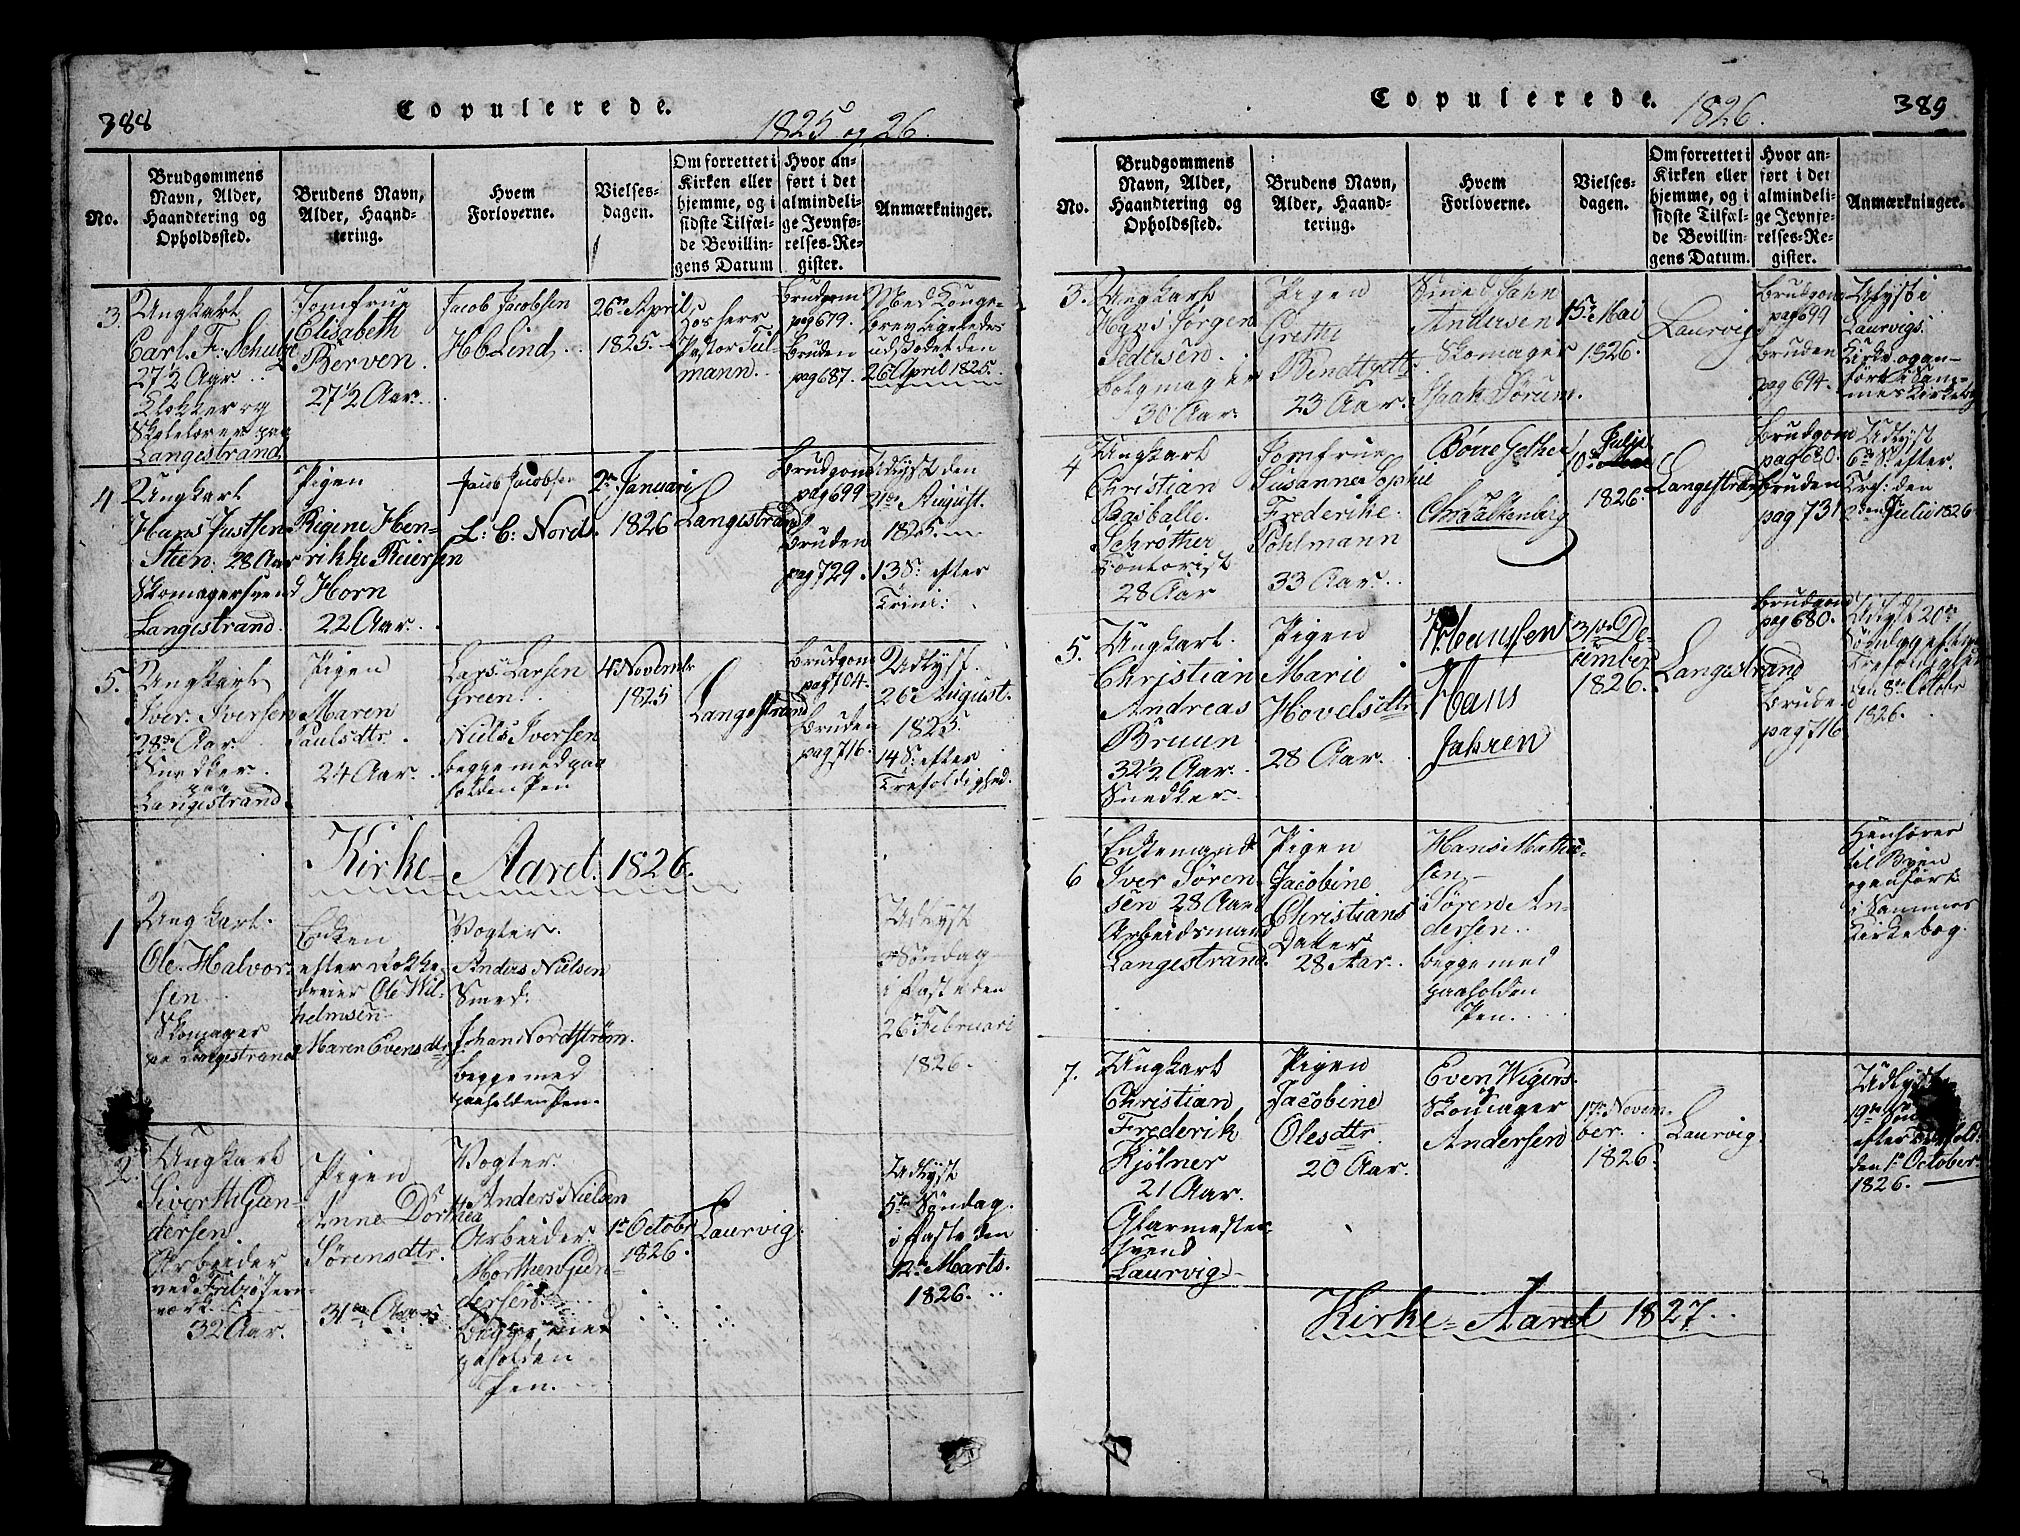 388
Copulerede.
1825 og 26.
No.
Brudgommens
Navn, Alder,
Haandtering og
Opholdssted.
Brudens Navn,
Alder, Haand-
tering.
Hvem
Forloverne.
Vielses-
dagen.
Om forrettet i
Kirken eller
hjemme, og i
sidste Tilfæl-
de Bevillin-
gens Datum
Hvor an-
ført i det
almindeli-
ge Jevnfø-
relses-Re-
gister.
Anmærkninger.
3.
Ungkarl
Carl. F. Schulze
27½ Aar.
Klokker og
Skolelærer paa
Langestrand.
Jomfrue
Elisabeth
Berven.
27½ Aar.
Jacob Jacobsen
H. C. Lind
26de April
1825.
Hos Herr
Pastor Tul-
mann.
Brudgom
pag 679.
Bruden
pag 687.
Med Konge-
brev
udstædt den
26 April 1825.
4
Ungkarl
Hans Justsen
Steen. 28 Aar
Skomagersvend
Langestrand.
Pigen
Rigine Hen-
rikke Reiersen
Horn
22 Aar.
Jacob Jacobsen
L. C. Nords.
2den Januari
1826
Langestrand
Brudgom
pag 699
Bruden
pag 729.
Udlyst den
21de August.
1825.
13 S. efter
Trini:
5.
Ungkarl
Iver. Iversen
28de Aar.
Snedker.
paa
Langestrand.
Pigen
Maren
Paulsdtr.
24 Aar.
Lars Larsen
Green.
Niels Iversen
begge med paa
holden Pen
4de Novembr
1825
Langestrand
Brudgom
pag 704.
Bruden
pag 716.
Udlyst.
26 August.
1825.
14 S. efter
Trefoldighed.
Kirke-Aaret. 1826.
1
Ungkarl.
Ole. Halvor-
sen
Skomager
paa Langestrand
Enken
efter Rokke-
dreier Ole Wil-
helmsen
Maren Evensdtr
Vogter.
Anders Nielsen
Smed.
Johan Nordstrøm.
begge med
paaholden Pen.
Udlyst
Søndag
i Faste den
26 Februari
1826.
2.
Ungkarl
Siver Th Gan-
dersen
Arbeider
ved Fritzø Jern-
værk.
32 Aar.
Pigen
Anne Dorthea
Sørensdtr.
31 Aar
Vogter.
Anders Nielsen
Arbeider.
Morthen Gun-
dersen
begge med
paholden
Pen.
1 Octobr
1826.
Laurvig.
Udlyst
5te Søndag.
i Faste den
12 Marts.
1826.
Copulerede.
1826.
389
No.
Brudgommens
Navn, Alder,
Haandtering og
Opholdssted.
Brudens Navn,
Alder, Haand-
tering.
Hvem
Forloverne.
Vielses-
dagen.
Om forrettet i
Kirken eller
hjemme, og i
sidste Tilfæl-
de Bevillin-
gens Datum.
Hvor an-
ført i det
almindeli-
ge Jevnfø-
relses-Re-
gister.
Anmærkninger.
3.
Ungkarl
Hans Jørgen
Pedersen.
30 Aar.
Pigen
Grethe
Bendtzdtr
23 Aar.
Smed Jahn
Andersen
Skomager
Isaak Sørum.
15 Mai
1826.
Laurvig
Brudgom
pag 699
Bruden
pag 694.
Udlyst i
Laurvigs.
Kirke. og an-
ført i Sam-
mes Kirkebog
4
Ungkarl
Christian
Basballe.
Schrøther
Contorist
28 Aar
Jomfrue
Susanne Sophie
Frederike.
Pohlmann
33 Aar.
Børre Gether
10de Julii
1826.
Langestrand
Brudgom
pag 680.
Bruden
pag 731
Udlyst
6te S. efter.
Tref: den
2den Julii 1826
5.
Ungkarl.
Christian
Andreas
Bruun
32½ Aar.
Snedker.
Pigen
Marie
Hovelsdtr
28 Aar.
Hansen
Hans
Jahren
31de De-
cember
1826.
Langestrand
Brudgom
pag 680.
Bruden
pag 716
Udlyst 20de
Søndag efter
den 8de Octobr
1826.
6
Enkemand
Iver Søren-
sen 28 Aar
Arbeidsmand
Langestrand.
Pigen
Jacobine
Christians
Datter
28 Aar.
Hans Mathi-
sen
Søren An-
dersen.
begge med
paaholden
Pen.
Henhører
til Byen
og anført
i Sammes
Kirkebog.
7.
Ungkarl
Christian
Frederik
Kjølner
21 Aar.
Glarmester
Svend
Laurvig
Pigen
Jacobine
Olesdtr.
20 Aar.
Even Wigers.
Skomager
Andersen
17de Novem-
ber.
1826.
Laurvig.
Udlyst
19de
efter Trefold.
den 1 October.
1826.
Kirke-Aaret 1827.